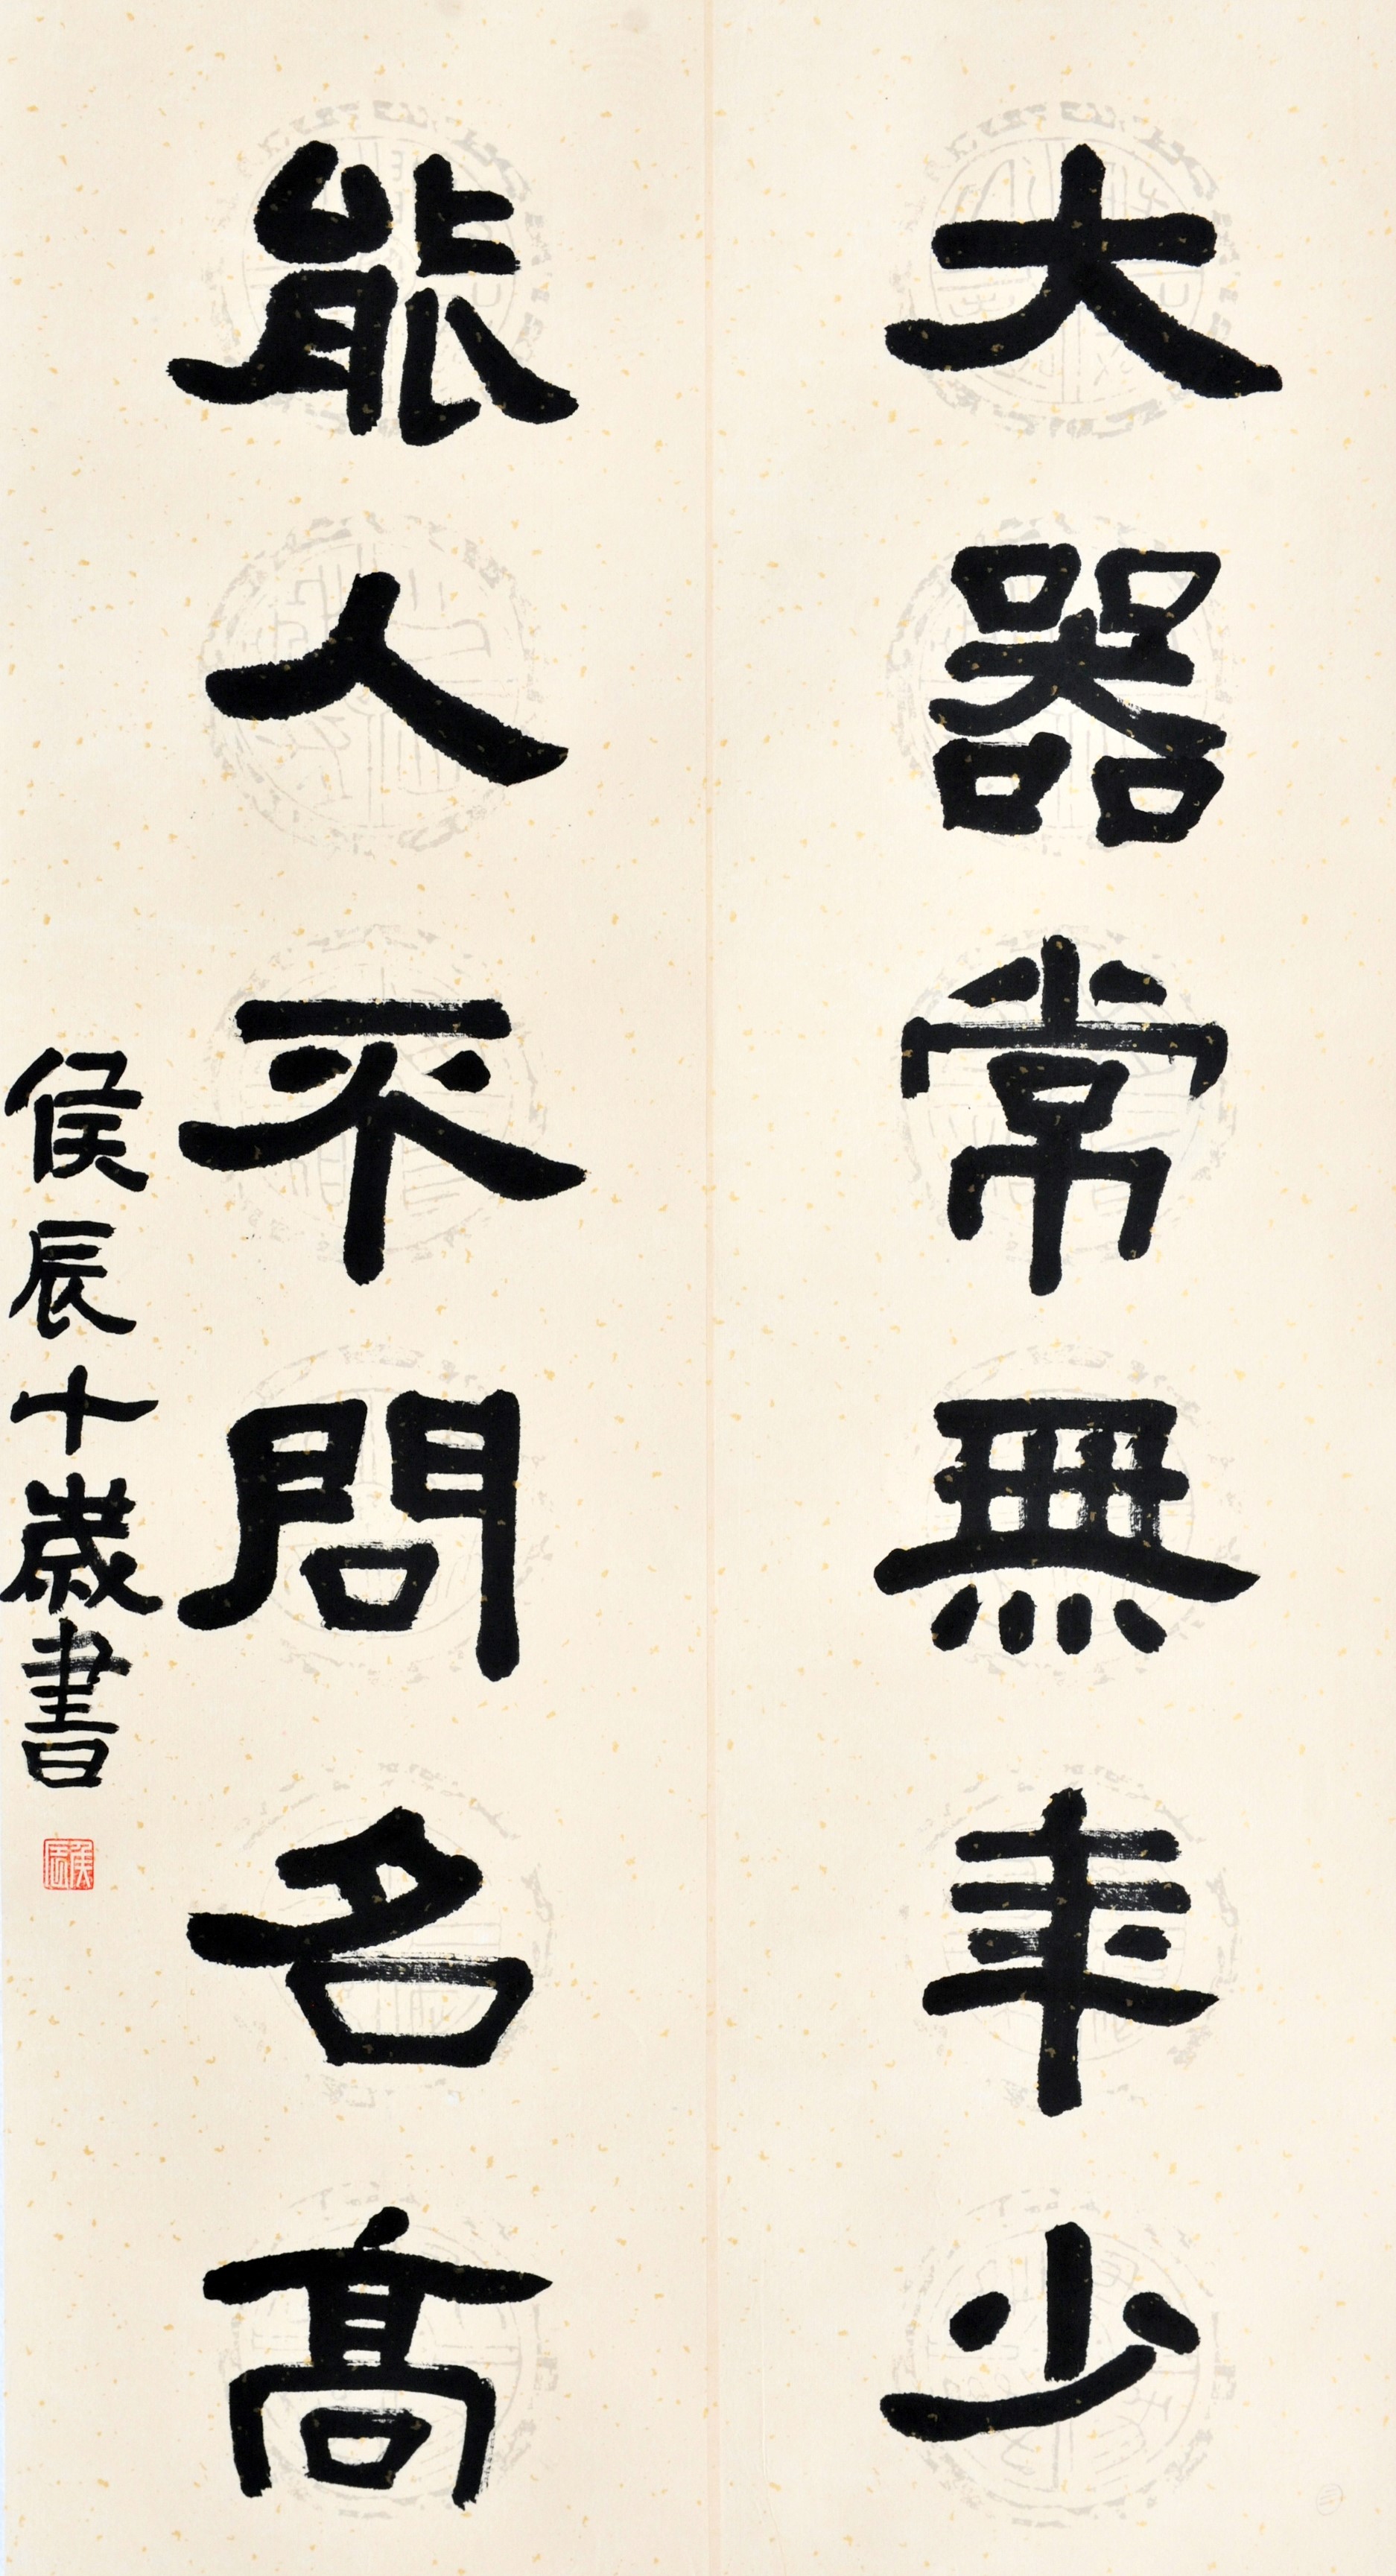 大器常無年少
能人不問名高
侯辰十歲書
侯辰